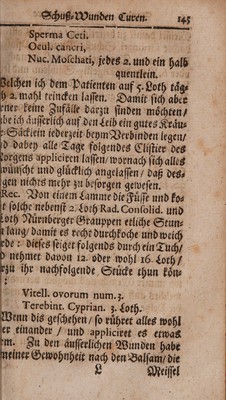 Schuß-Wunden Curen. 145
Sperma Ceti.
Ocul. cancri,
Nuc. Moschati, jedes 2. und ein halb
quentlein.
Welchen ich dem Patienten auf 5. Loth täg-
lich 2. mahl trincken lassen. Damit sich aber
ferner keine Zufälle darzu finden möchten/
habe ich äusserlich auf den Leib ein gutes Kräu-
ter Säcklein jederzeit beym Verbinden legen/
und dabey alle Tage folgendes Clistier des
Morgens appliciren lassen/ wornach sich alles
gewünscht und glücklich angelassen/ daß des-
wegen nichts mehr zu besorgen gewesen.
Rec. Von einem Lamme die Füsse und ko-
che solche nebenst 2. Loth Rad. Consolid. und
Loth Nürnberger Graupen etliche Stun-
den lang/ damit es recht durchkoche und weich
werde: dieses seiget folgends durch ein Tuch/
und nehmet davon 12. oder wohl 16. Loth/
darzu ihr nachfolgende Stücke thun kön-
net:
Vitell. ovorum num. 3.
Terebint. Cyprian. 3. Loth.
Wenn dis geschehen/ so rühret alles wohl
unter einander/ und appliciret es etwas
warm. Zu den äusserlichen Wunden habe
meiner Gewohnheit nach den Balsam/ die
L Meissel